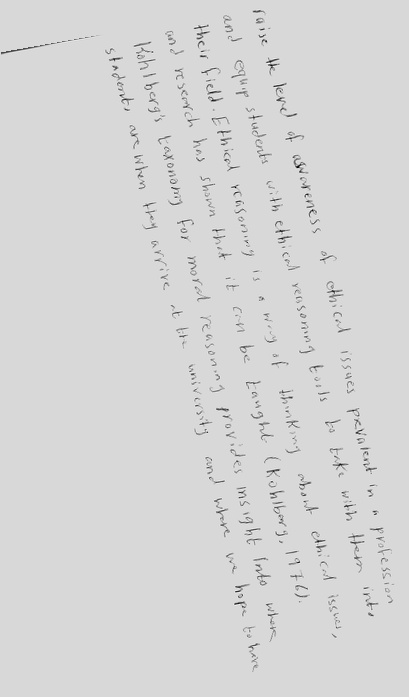 raise the level of awareness of ethical issues prevalent in a profession
and equip students with ethical reasoning tools to take with them into
their field. Ethical reasoning is a way of thinking about ethical issues,
and research has shown that it can be taught (Kohlberg, 1976).
Kohlberg's taxonomy for moral reasoning provides insight into where
students are when they arrive at the university and where we hope to have